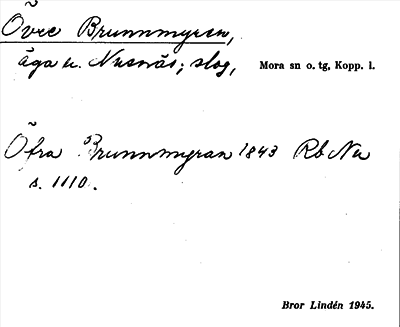 Övre Brunnmyren,
äga u. Nusnäs; slog, Mora sn o. tg, Kopp. l.
Öfra Brunnmyran 1843 Rb Nu
s. 1110.
Bror Lindén 1945.